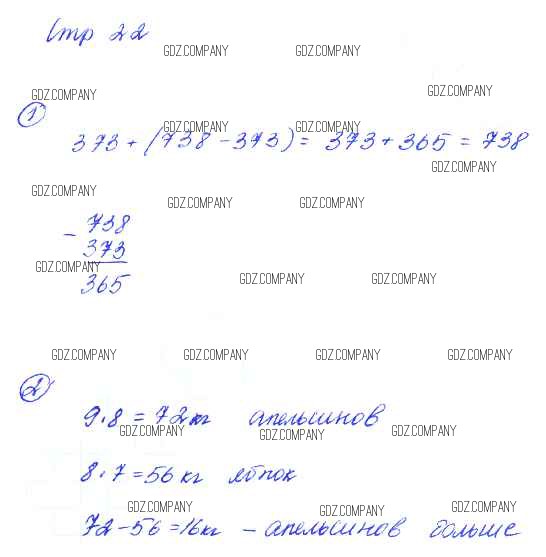 Стр 22
GDZ.COMPANY GDZ.COMPANY
GDZ.COMPANY GDZ.COMPANY
1
GDZ.COMPANY GDZ.COMPANY
373 + (738 - 373) = 373 + 365 = 738
GDZ.COMPANY
GDZ.COMPANY GDZ.COMPANY GDZ.COMPANY
- 738
373
GDZ.COMPANY GDZ.COMPANY GDZ.COMPANY
365
GDZ.COMPANY GDZ.COMPANY GDZ.COMPANY GDZ.COMPANY
2
9·8 = 72 кг апельсинов
GDZ.COMPANY GDZ.COMPANY GDZ.COMPANY
8·7 = 56 кг яблок
GDZ.COMPANY GDZ.COMPANY GDZ.COMPANY
72 - 56 = 16 кг - апельсинов больше